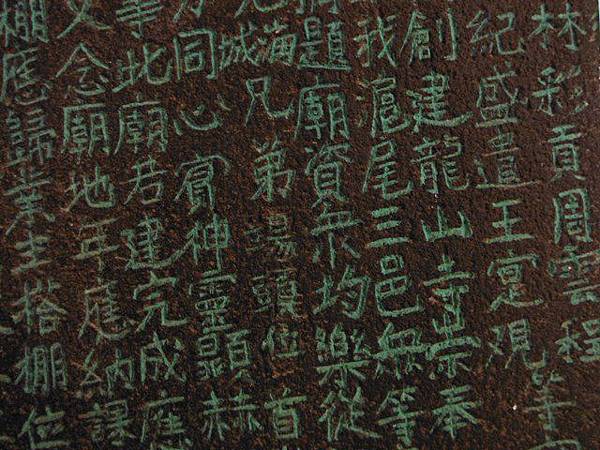 林彩貢周雲程
紀盛遣王寔观
創建龍山寺崇奉
我滬尾三邑無等
題廟資眾均樂從
海兄弟塲頭位首
同心賓神靈顯赫
此廟若建完成應
念廟地年應納課
棚應歸業主搭棚位